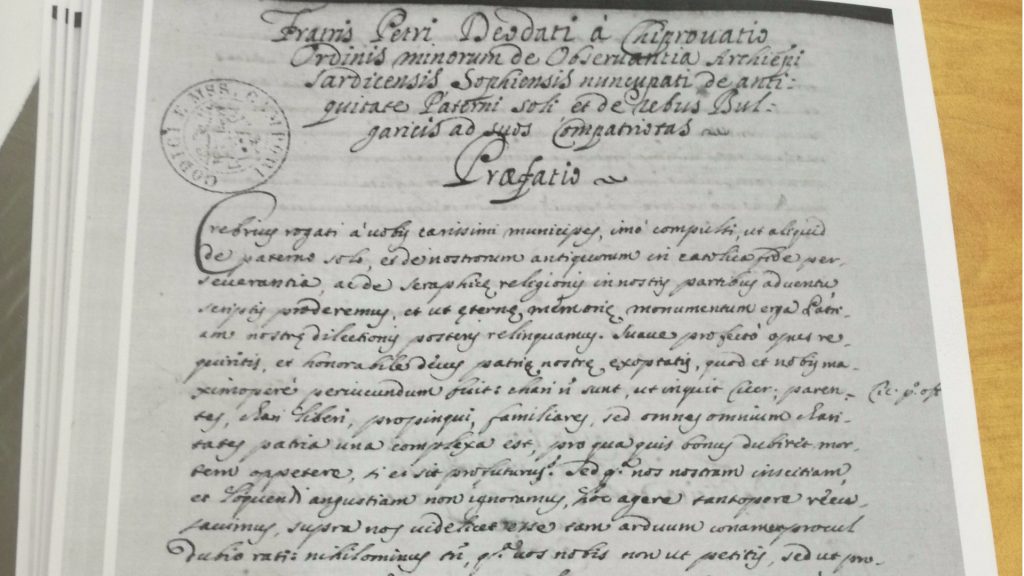 Fratris Petri Deodati à Chiprovatio
Ordinis minorum de Observantia Archiepi
Sardicensis Sophiensis nuncupati de anti-
quitate Paterni soli et de rebus Bul-
garicis ad suos Compatriotas
CODICI E MSS. CAMPORI
Præfatio
Crebrius rogati à vobis carissimi municipes, imò compulsi, ut aliquid
de paterno solo, et de nostrorum antiquorum in catolica fide per-
severantia, ac de Seraphicę religionis in nostris partibus adventu
scriptis proderemus, et ut ęternę memorię monumentum erga Patri-
am nostrę dilectionis posteris relinquamus. Suave profectò opus re-
quiritis, et honorabile decus patrię nostrę exoptatis, quod et nobis ma-
ximoperè periucundum fuit: chari n. sunt, ut inquit Cicer. paren-
tes, chari liberi, propinqui, familiares, sed omnes omnium chari-
tates patria una complexa est, pro qua quis bonus dubitet mor-
tem oppetere, si ei sit profuturus? Sed q. nos nostram inscitiam,
et loquendi angustiam non ignoramus, hoc agere tantopere recu-
savimus, supra nos videlicet esse tam arduum conamen procul
dubio rati: nihilominus tn, q. vos nobis non ut petitis, sed ut pro-
Cic. po. off